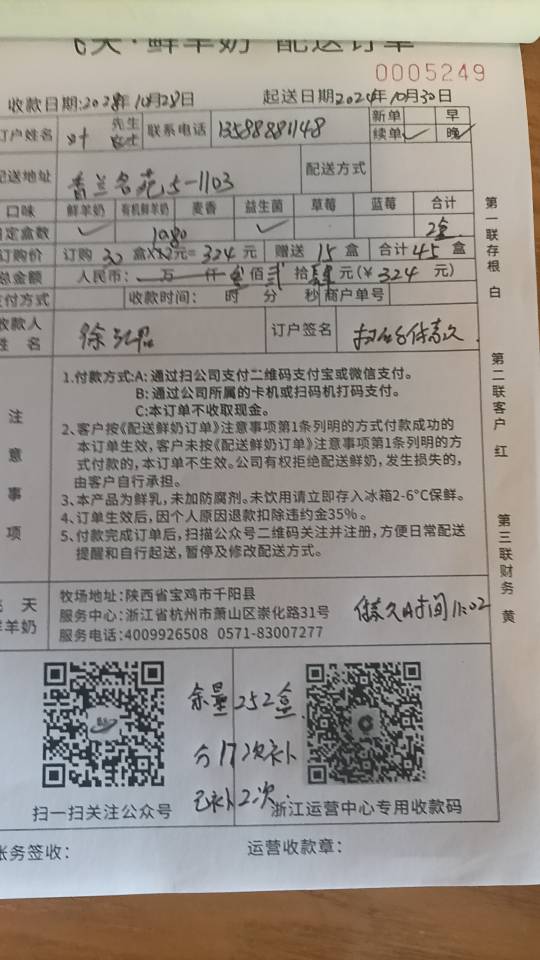 飞天·鲜羊奶 配送订单
0005249
收款日期:2024年10月28日 起送日期2024年10月30日
订户姓名 叶 先生 女士 联系电话 13588881148 新单 早
续单✓ 晚✓
配送地址 香兰名苑5-1103 配送方式
口味 鲜羊奶 有机鲜羊奶 麦香 益生菌 草莓 蓝莓 合计
定盒数 ✓ 1080 ✓ 2盒
订购价 订购 30 盒 元=324元 赠送 15 盒 合计45盒
总金额 人民币: 万 仟 叁佰贰拾肆元(¥324 元)
支付方式 收款时间: 时 分 秒 商户单号
收款人姓名 徐 订户签名
注意事项
1.付款方式:A: 通过扫公司支付二维码支付宝或微信支付。
B: 通过公司所属的卡机或扫码机打码支付。
C:本订单不收取现金。
2、客户按《配送鲜奶订单》注意事项第1条列明的方式付款成功的
本订单生效，客户未按《配送鲜奶订单》注意事项第1条列明的方
式付款的，本订单不生效。公司有权拒绝配送鲜奶，发生损失的，
由客户自行承担。
3、本产品为鲜乳，未加防腐剂。未饮用请立即存入冰箱2-6°C保鲜。
4、订单生效后，因个人原因退款扣除违约金35%。
5、付款完成订单后，扫描公众号二维码关注并注册，方便日常配送
提醒和自行起送，暂停及修改配送方式。
飞天鲜羊奶
牧场地址:陕西省宝鸡市千阳县
服务中心:浙江省杭州市萧山区崇化路31号
服务电话:4009926508 0571-83007277
时间11:02
余量252盒
分17次补
已补2次
扫一扫关注公众号 浙江运营中心专用收款码
账务签收: 运营收款章:
第一联存根 白
第二联客户 红
第三联财务 黄